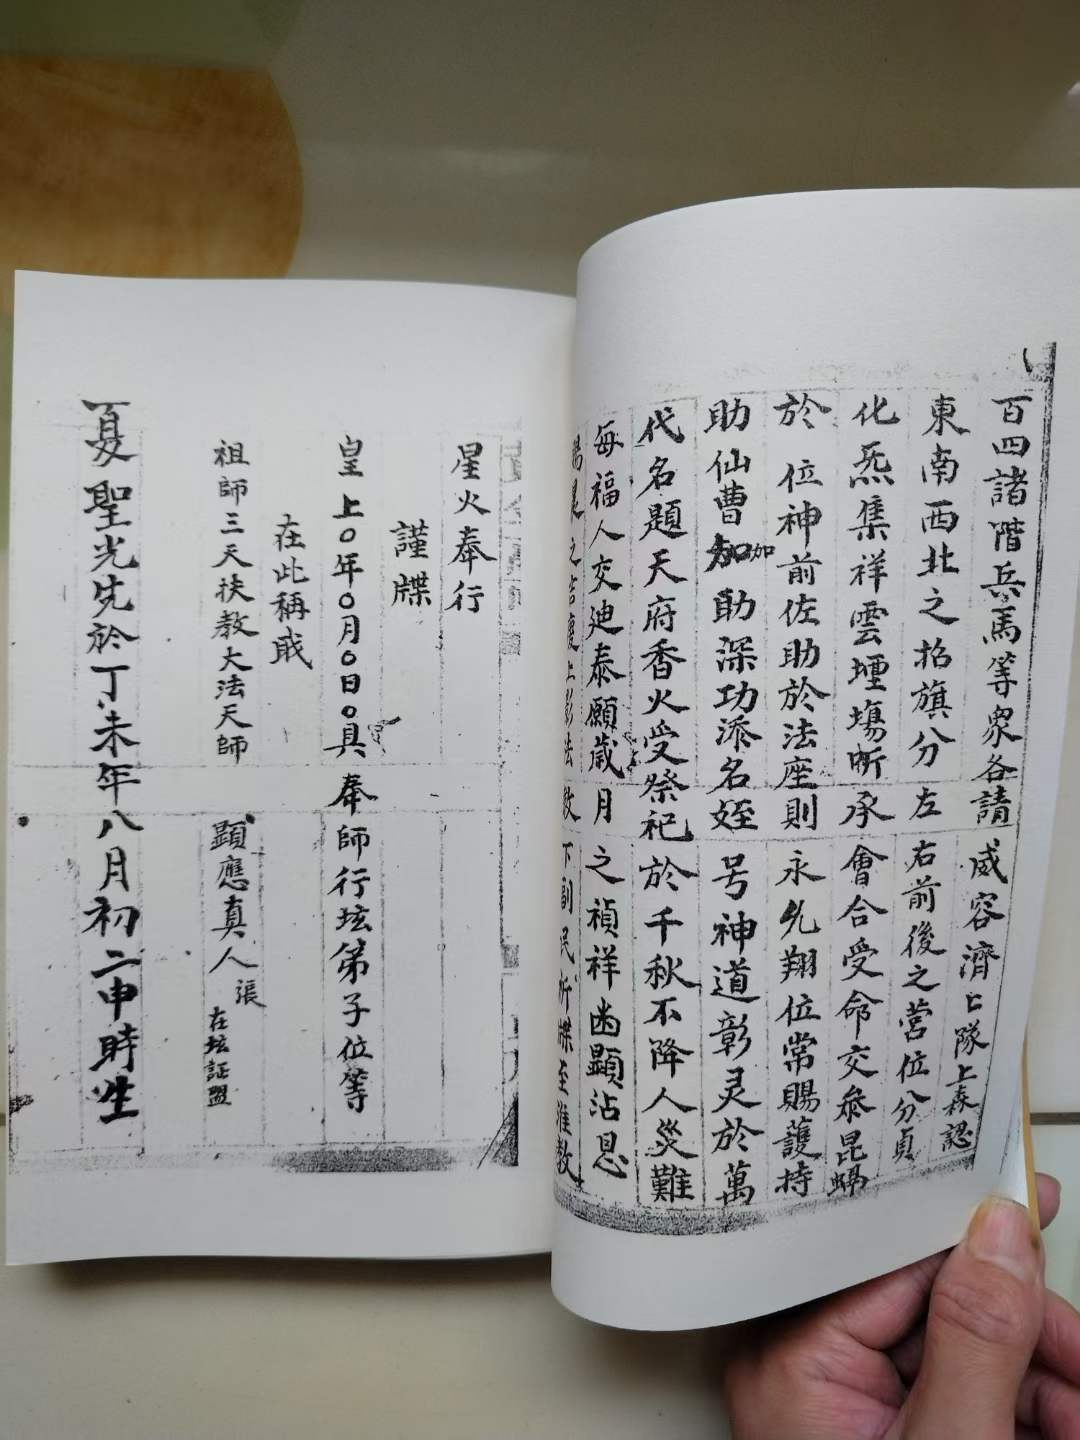 百四諸階兵馬等衆各請威容濟〻隊上森認
東南西北之招旗分左右前後之营位分負
化炁集祥雲堙塲昕承會合受命交叅昆蜴
於位神前佐助於法座則永允翔位常賜護持
助仙曹加助深功添名姪号神道彰灵於萬
加
代名題天府香火受祭祀於千秋不降人災難
每福人交迪泰願歲月之禎祥幽顯沾恩
之 法教下 民 牒至准教
星火奉行
謹牒
皇上〇年〇月〇日〇具奉師行坛弟子位等
在此稱戕
祖師三天扶教大法天師顕應真人張在坛証盟
夏聖光先於丁未年八月初二申時生